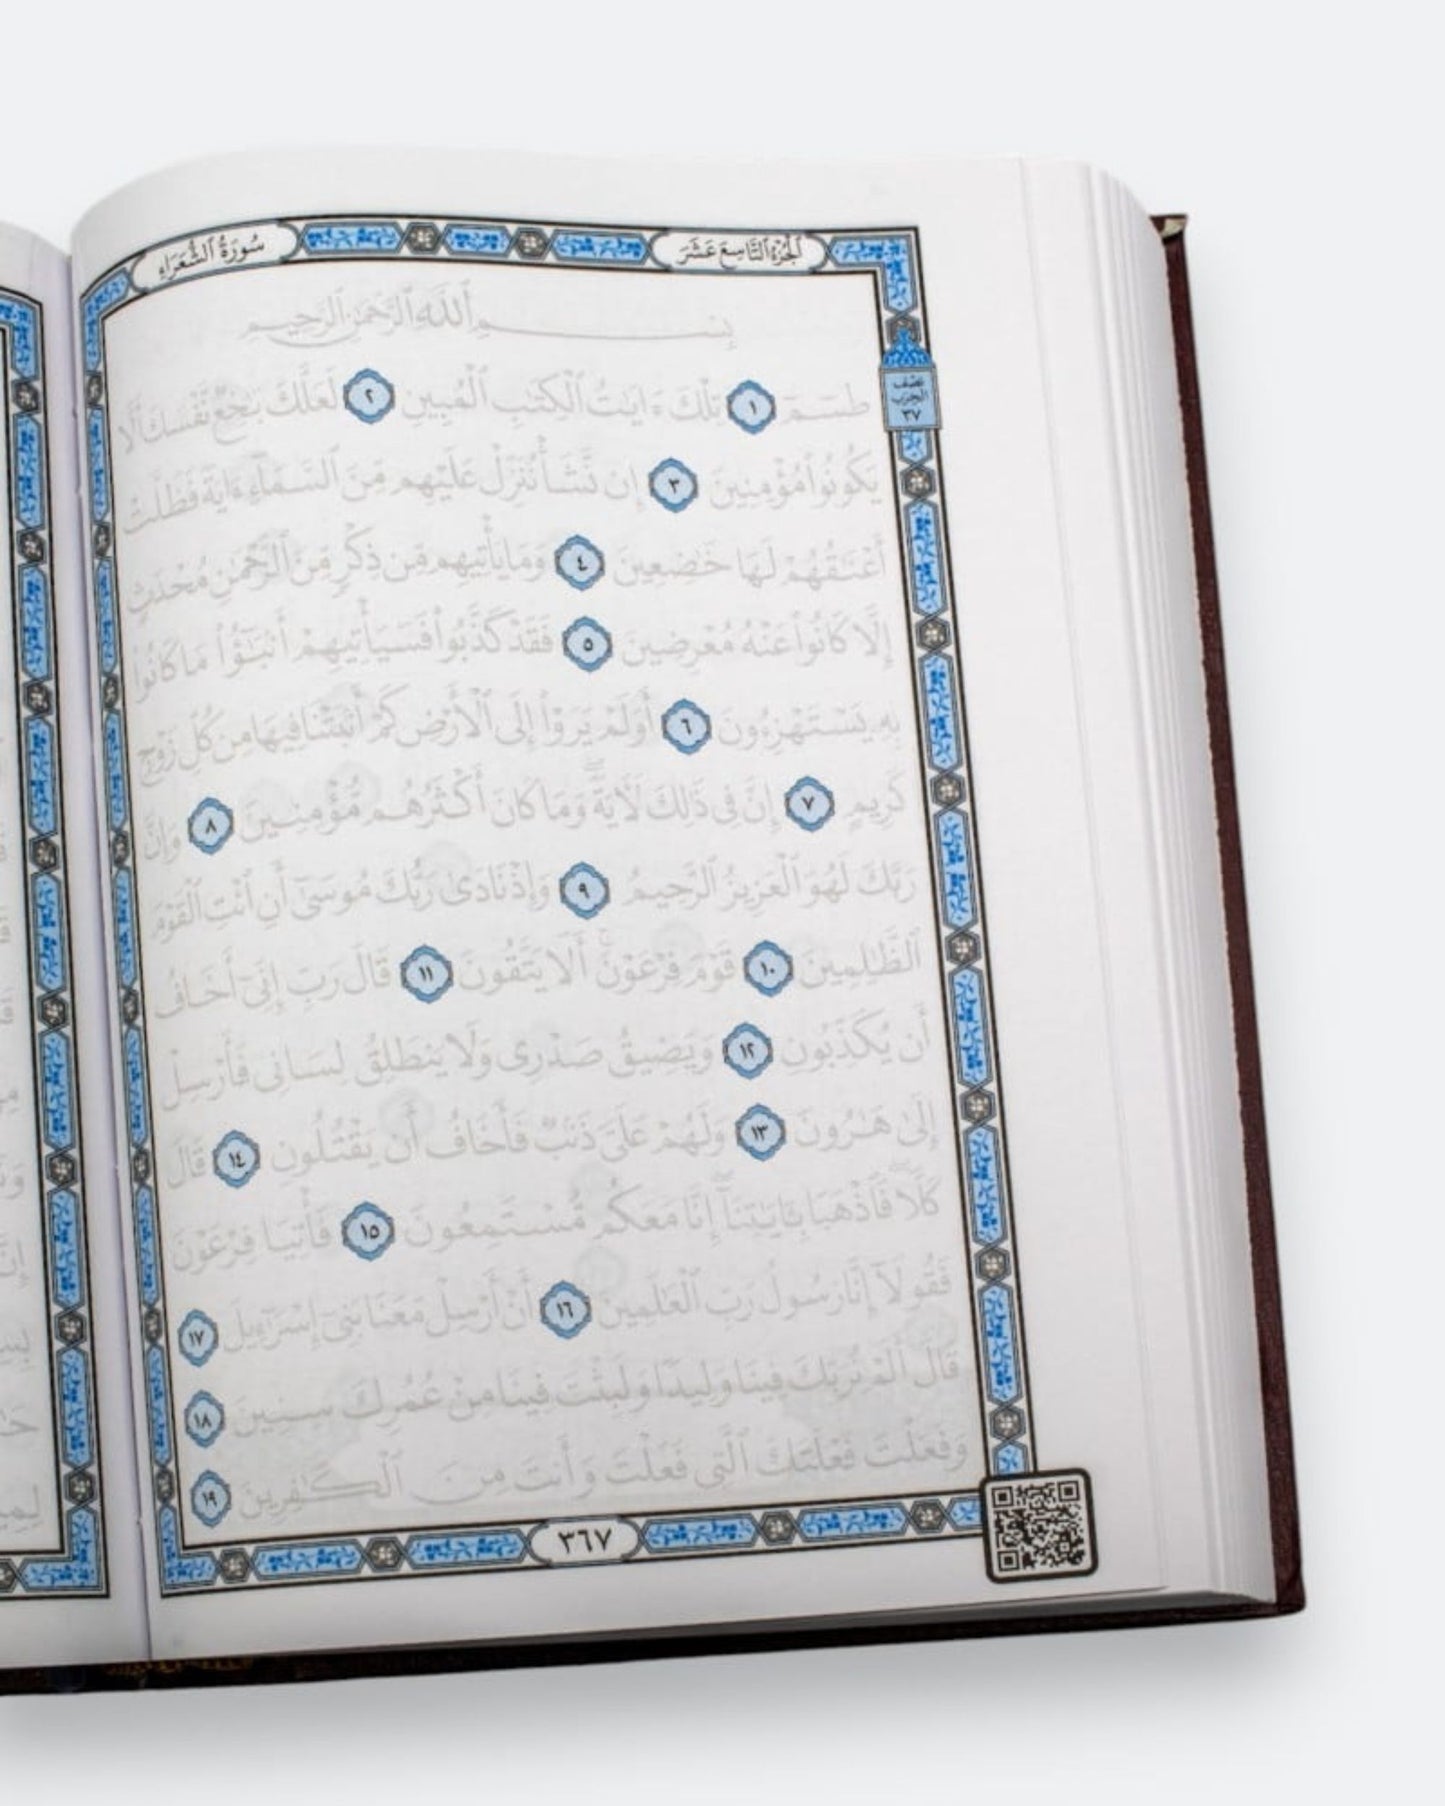 سُورَةُ ٱلشُّعَرَاءِ
ٱلْجُزْءُ ٱلتَّاسِعَ عَشَرَ
بِسْمِ ٱللَّهِ ٱلرَّحْمَٰنِ ٱلرَّحِيمِ
طسٓمٓ ١ تِلْكَ ءَايَٰتُ ٱلْكِتَٰبِ ٱلْمُبِينِ ٢ لَعَلَّكَ بَٰخِعٌ نَّفْسَكَ أَلَّا
يَكُونُوا۟ مُؤْمِنِينَ ٣ إِن نَّشَأْ نُنَزِّلْ عَلَيْهِم مِّنَ ٱلسَّمَآءِ ءَايَةً فَظَلَّتْ
أَعْنَٰقُهُمْ لَهَا خَٰضِعِينَ ٤ وَمَا يَأْتِيهِم مِّن ذِكْرٍ مِّنَ ٱلرَّحْمَٰنِ مُحْدَثٍ
إِلَّا كَانُوا۟ عَنْهُ مُعْرِضِينَ ٥ فَقَدْ كَذَّبُوا۟ فَسَيَأْتِيهِمْ أَنۢبَٰٓؤُا۟ مَا كَانُوا۟
بِهِۦ يَسْتَهْزِءُونَ ٦ أَوَلَمْ يَرَوْا۟ إِلَى ٱلْأَرْضِ كَمْ أَنۢبَتْنَا فِيهَا مِن كُلِّ زَوْجٍ
كَرِيمٍ ٧ إِنَّ فِى ذَٰلِكَ لَءَايَةً ۖ وَمَا كَانَ أَكْثَرُهُم مُّؤْمِنِينَ ٨ وَإِنَّ
رَبَّكَ لَهُوَ ٱلْعَزِيزُ ٱلرَّحِيمُ ٩ وَإِذْ نَادَىٰ رَبُّكَ مُوسَىٰٓ أَنِ ٱئْتِ ٱلْقَوْمَ
ٱلظَّٰلِمِينَ ١٠ قَوْمَ فِرْعَوْنَ ۚ أَلَا يَتَّقُونَ ١١ قَالَ رَبِّ إِنِّىٓ أَخَافُ
أَن يُكَذِّبُونِ ١٢ وَيَضِيقُ صَدْرِى وَلَا يَنطَلِقُ لِسَانِى فَأَرْسِلْ
إِلَىٰ هَٰرُونَ ١٣ وَلَهُمْ عَلَىَّ ذَنۢبٌ فَأَخَافُ أَن يَقْتُلُونِ ١٤ قَالَ
كَلَّا ۖ فَٱذْهَبَا بِـَٔايَٰتِنَآ ۖ إِنَّا مَعَكُم مُّسْتَمِعُونَ ١٥ فَأْتِيَا فِرْعَوْنَ
فَقُولَآ إِنَّا رَسُولُ رَبِّ ٱلْعَٰلَمِينَ ١٦ أَنْ أَرْسِلْ مَعَنَا بَنِىٓ إِسْرَٰٓءِيلَ ١٧
قَالَ أَلَمْ نُرَبِّكَ فِينَا وَلِيدًا وَلَبِثْتَ فِينَا مِنْ عُمُرِكَ سِنِينَ ١٨
وَفَعَلْتَ فَعْلَتَكَ ٱلَّتِى فَعَلْتَ وَأَنتَ مِنَ ٱلْكَٰفِرِينَ ١٩
نِصْف
الحِزْب
٣٧
٣٦٧